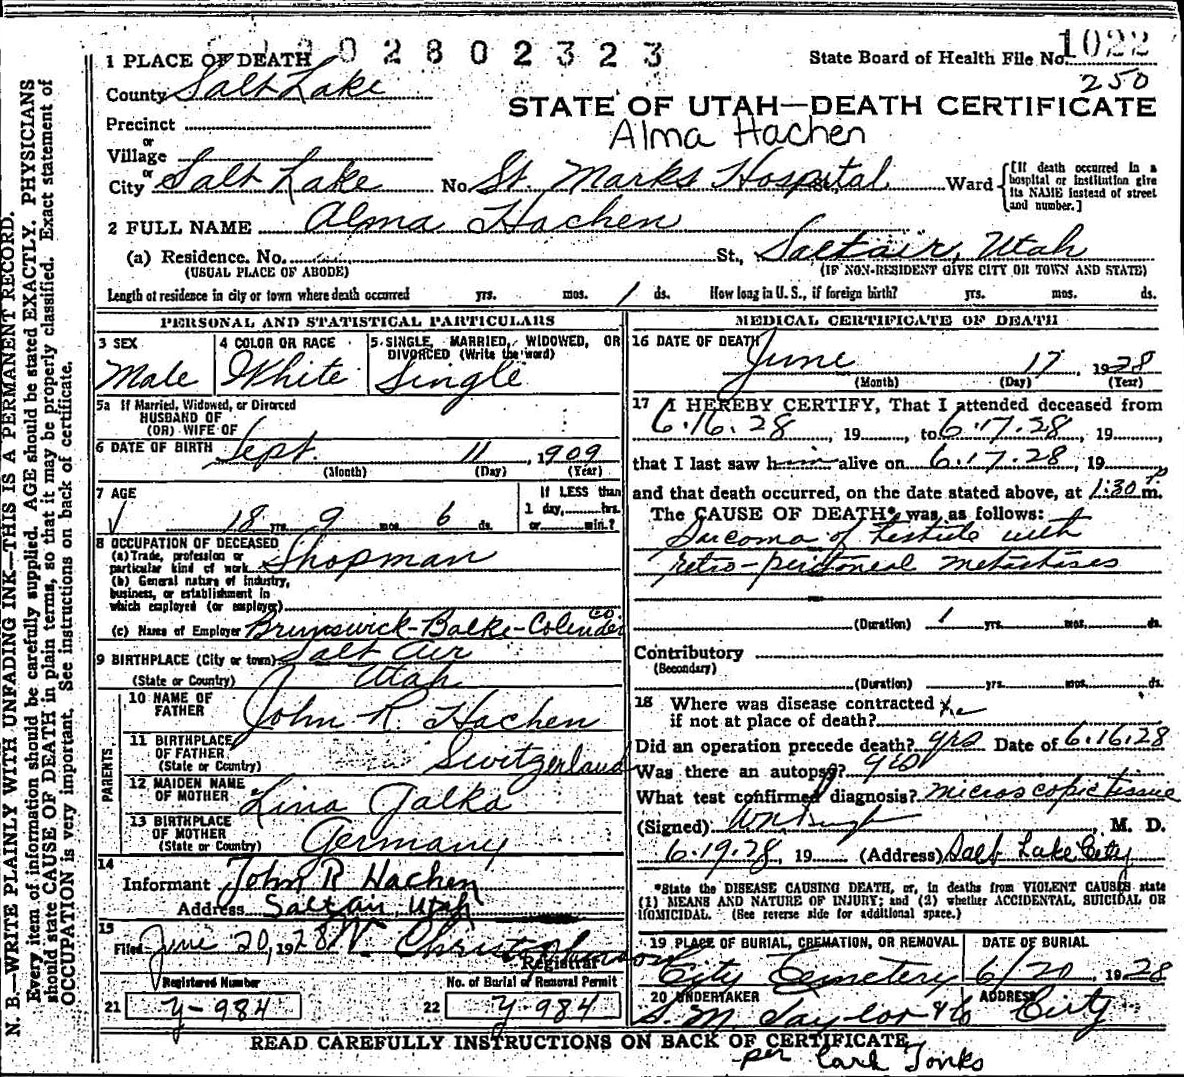 N. B.—WRITE PLAINLY WITH UNFADING INK—THIS IS A PERMANENT RECORD.
Every item of information should be carefully supplied. AGE should be stated EXACTLY. PHYSICIANS
should state CAUSE OF DEATH in plain terms, so that it may be properly classified. Exact statement of
OCCUPATION is very important. See instructions on back of certificate.
02802323
1 PLACE OF DEATH
State Board of Health File No. 1022
250
County Salt Lake
STATE OF UTAH—DEATH CERTIFICATE
Precinct
Alma Hachen
or
Village
or
City Salt Lake No. St. Marks Hospital Ward
[If death occurred in a
hospital or institution give
its NAME instead of street
and number.]
2 FULL NAME Alma Hachen
(a) Residence. No. St., Saltair, Utah
(USUAL PLACE OF ABODE) (IF NON-RESIDENT GIVE CITY OR TOWN AND STATE)
Length of residence in city or town where death occurred yrs. mos. 1 ds. How long in U. S., if foreign birth? yrs. mos. ds.
PERSONAL AND STATISTICAL PARTICULARS
3 SEX
Male
4 COLOR OR RACE
White
5 SINGLE, MARRIED, WIDOWED, OR
DIVORCED (Write the word)
Single
5a If Married, Widowed, or Divorced
HUSBAND OF
(OR) WIFE OF
6 DATE OF BIRTH Sept. 11, 1909
(Month) (Day) (Year)
7 AGE
18 yrs. 9 mos. 6 ds.
If LESS than
1 day, hrs.
or min.?
8 OCCUPATION OF DECEASED
(a) Trade, profession or
particular kind of work Shopman
(b) General nature of industry,
business, or establishment in
which employed (or employer)
(c) Name of Employer Brunswick-Balke-Colender Co
9 BIRTHPLACE (City or town) Salt Air
(State or Country) Utah
PARENTS
10 NAME OF
FATHER John R. Hachen
11 BIRTHPLACE
OF FATHER
(State or Country) Switzerland
12 MAIDEN NAME
OF MOTHER Lina Galka
13 BIRTHPLACE
OF MOTHER
(State or Country) Germany
14
Informant John R Hachen
Address Saltair, Utah
15
Filed June 20, 1928 Christopherson
Registrar
Registered Number
21 Y-984
No. of Burial or Removal Permit
22 Y-984
MEDICAL CERTIFICATE OF DEATH
16 DATE OF DEATH
June 17, 1928
(Month) (Day) (Year)
17 I HEREBY CERTIFY, That I attended deceased from
6.16.28, 19, to 6.17.28, 19,
that I last saw him alive on 6.17.28, 19
and that death occurred, on the date stated above, at 1:30 P m.
The CAUSE OF DEATH* was as follows:
Sarcoma of testicle with
retro-peritoneal metastases
(Duration) 1 yrs. mos. ds.
Contributory
(Secondary)
(Duration) yrs. mos. ds.
18 Where was disease contracted
if not at place of death?
Did an operation precede death? yes Date of 6.16.28
Was there an autopsy?
What test confirmed diagnosis? microscopic tissue
(Signed) M. D.
6.19.28, 19 (Address) Salt Lake City
*State the DISEASE CAUSING DEATH, or, in deaths from VIOLENT CAUSES state
(1) MEANS AND NATURE OF INJURY; and (2) whether ACCIDENTAL, SUICIDAL OR
HOMICIDAL. (See reverse side for additional space.)
19 PLACE OF BURIAL, CREMATION, OR REMOVAL
City Cemetery
DATE OF BURIAL
6/20, 1928
20 UNDERTAKER
S. M. Taylor & Co
ADDRESS
City
READ CAREFULLY INSTRUCTIONS ON BACK OF CERTIFICATE
per Carl Tonks